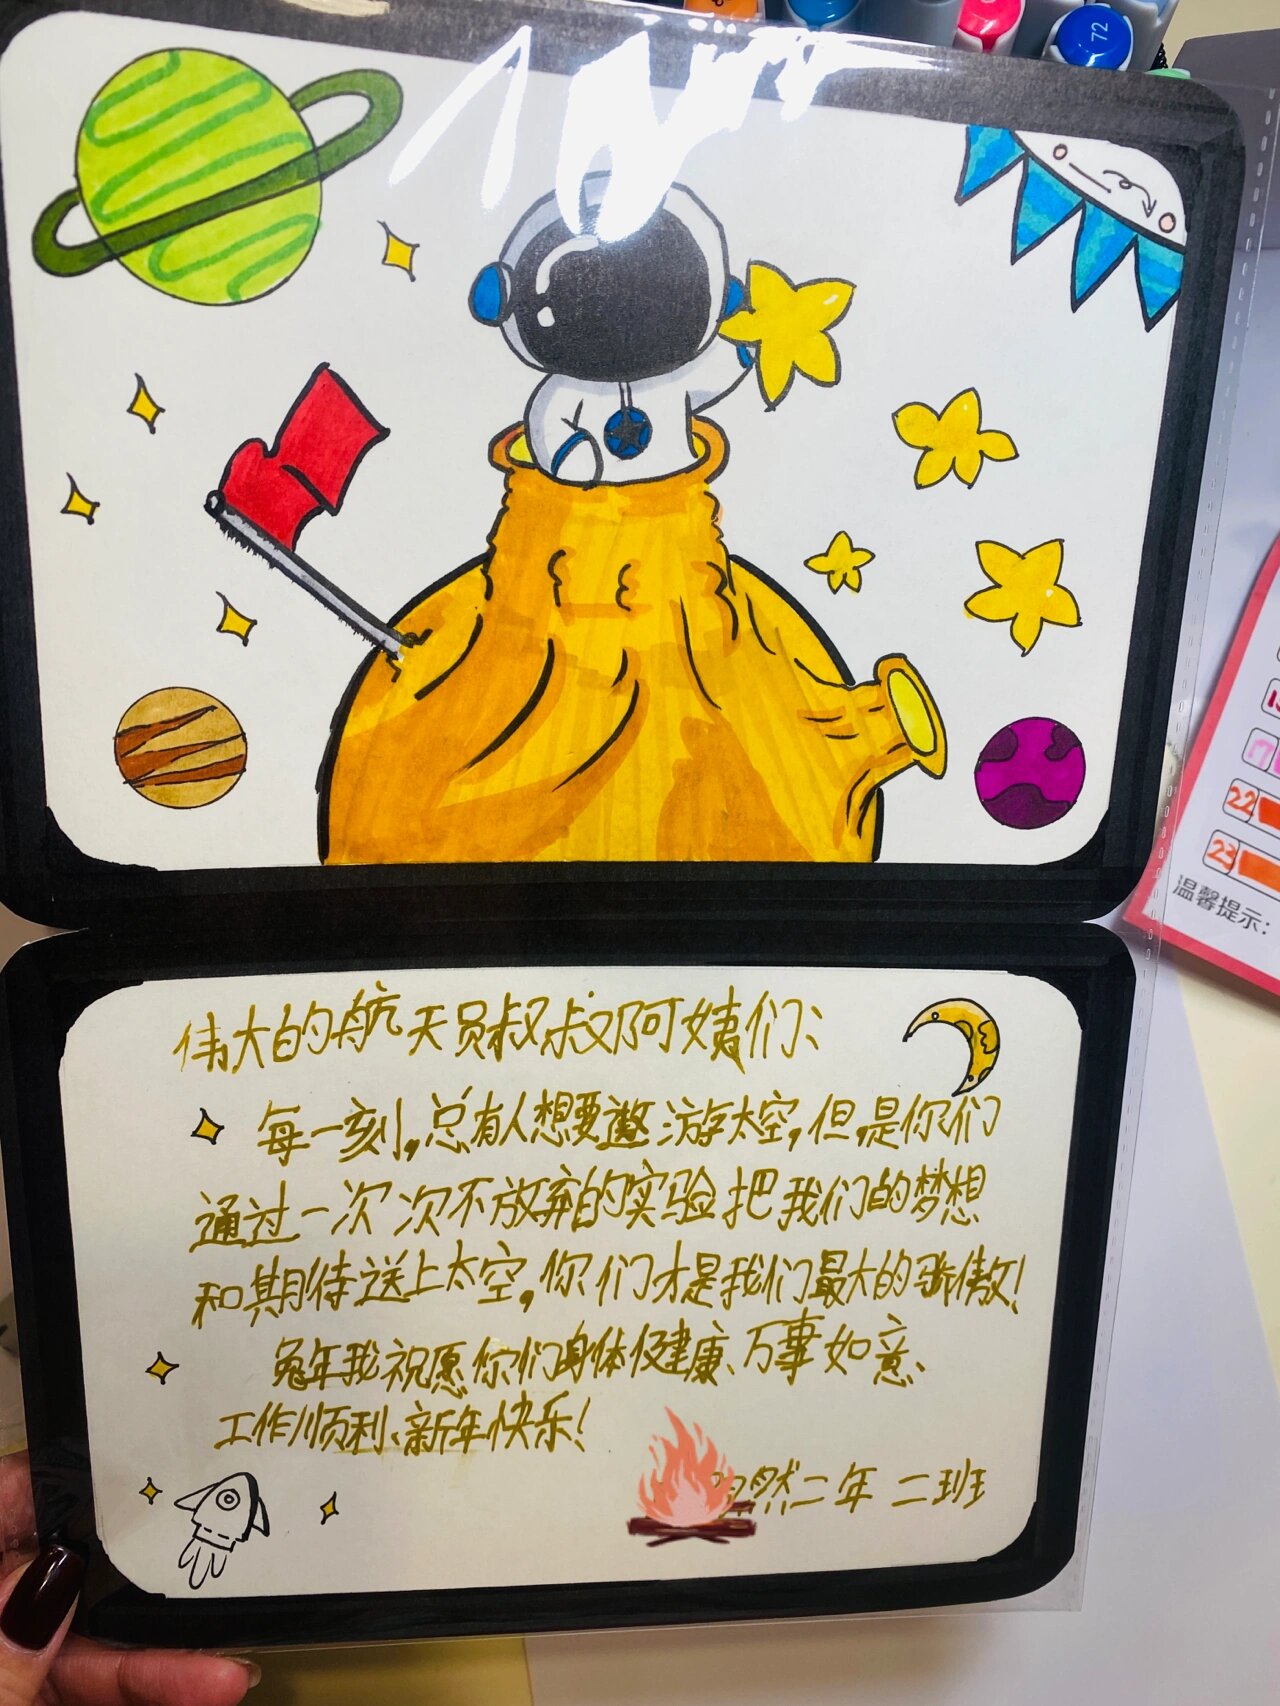 72
22
23
温馨提示:
伟大的航天员叔叔阿姨们:
每一刻,总有人想要遨游太空,但是你们
通过一次次不放弃的实验把我们的梦想
和期待送上太空,你们才是我们最大的骄傲!
兔年我祝愿你们身体健康、万事如意、
工作顺利、新年快乐!
然二年二班